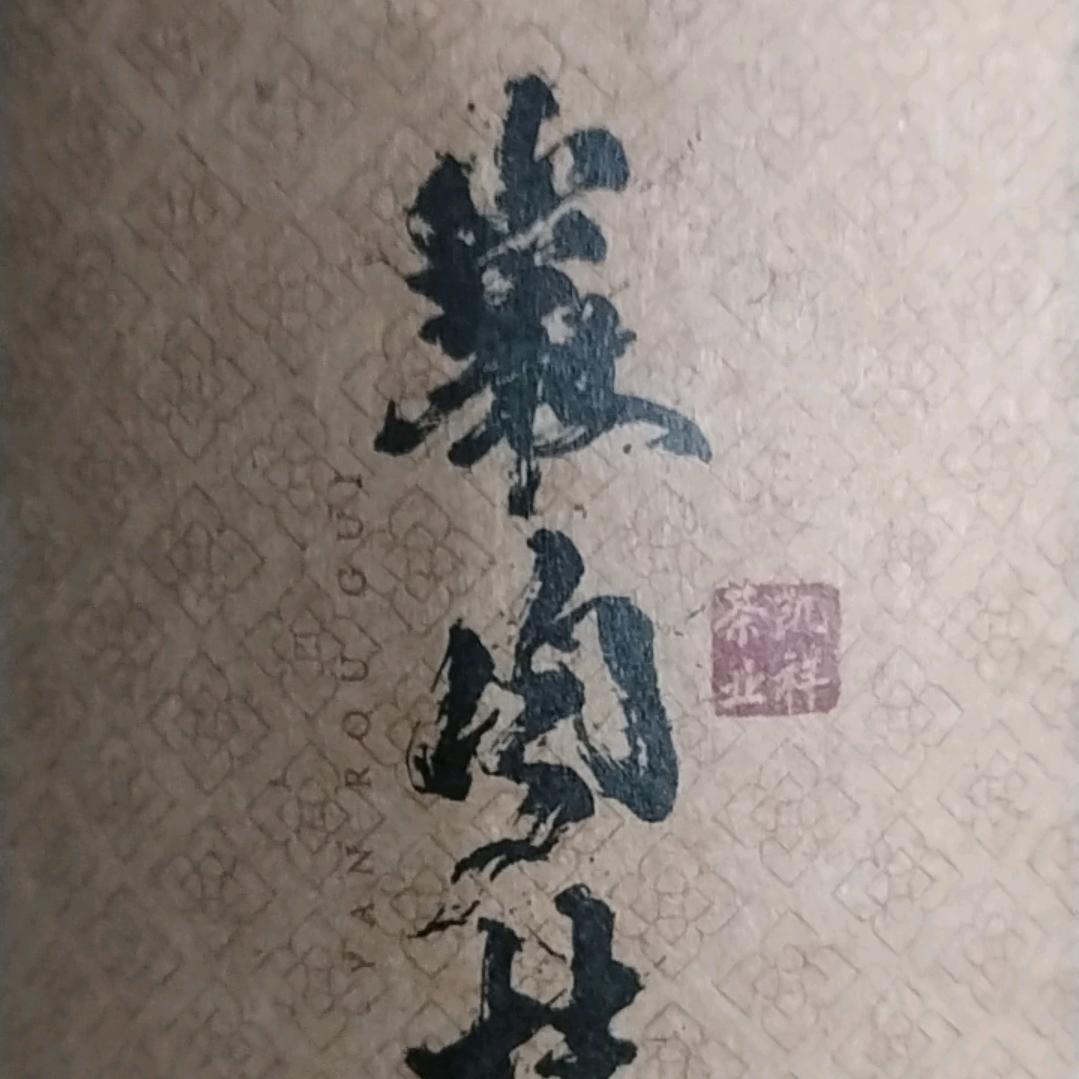 巖肉
YAN ROU GUI
凯祥
茶业